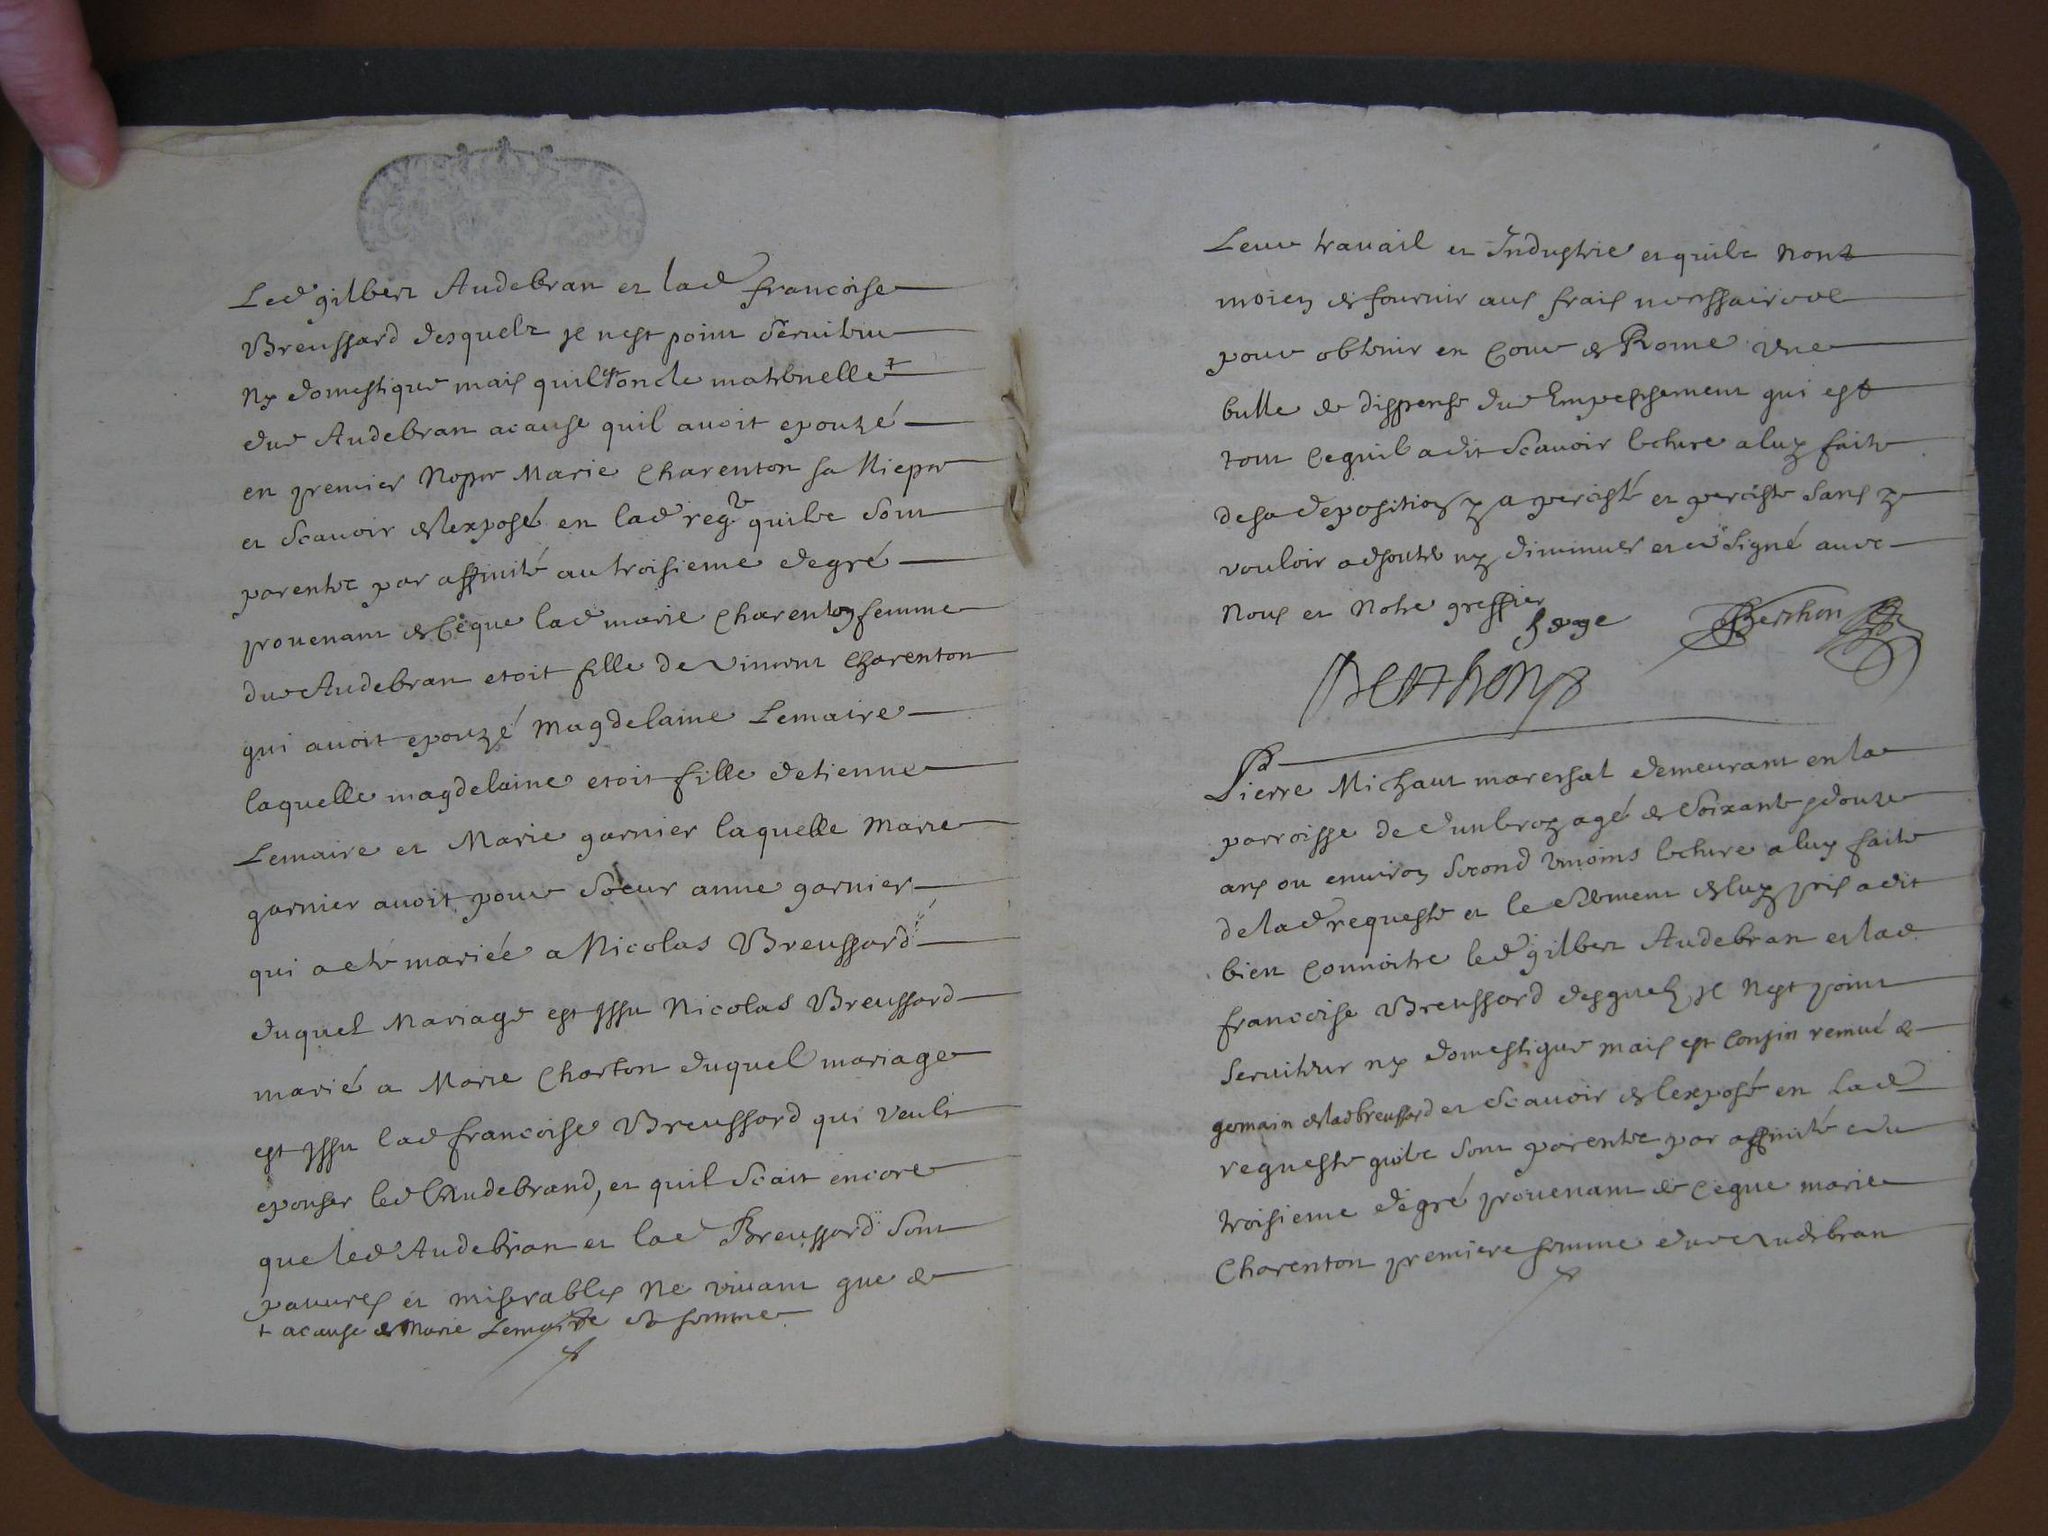 Led gilbert Audebran et lad francoise
Breussard desquels je nest point serviteur
ny domestique mais quil est oncle maternelle +
dud Audebran acause quil avoit epouzé
en premier Nopce Marie Charenton sa Niepce
et scavoir de lexposé en lad reqte quils sont
parents par affinité au troisieme degré
provenant de ceque lad marie Charenton femme
dud Audebran etoit fille de vincent Charenton
qui avoit epouzé Magdelaine Lemaire
laquelle magdelaine etoit fille detienne
Lemaire et Marie garnier laquelle Marie
garnier avoit pour soeur anne garnier
qui a eté mariée a Nicolas Breussard
duquel Mariage est Issu Nicolas Breussard
marié a Marie Charton duquel mariage
est Issu lad francoise Breussard qui veult
epouser led Audebrand, et quil scait encore
que led Audebran et lad Breussard sont
pauvres et miserables ne vivant que de
+ acause de Marie Lemaire sa femme
Leur travail et Industrie et quils nont
moien de fournir aus frais necessaires
pour obtenir en Cour de Rome une
bulle de dispense dud Empeschement qui est
tout Cequil a dit scavoir lecture a luy faite
desa deposition y a percisté et perciste sans y
vouloir adjouter ny diminuer et signé avec
Nous et Notre greffier
Berthon
Berthon
Pierre Michaut mareschal demeurant en la
parroisse de agé de soixante et douze
ans ou environ second temoins lecture a luy faite
de lad requeste et le serment de luy pris a dit
bien Connoitre led gilbert Audebran et lad
francoise Breussard desquels je Nest point
serviteur ny domestique mais est Cousin remué de
germain de lad breussard et scavoir de lexposé en lad
requeste quils sont parents par affinité du
troisieme degré provenant de ceque marie
Charenton premiere femme dud Audebran